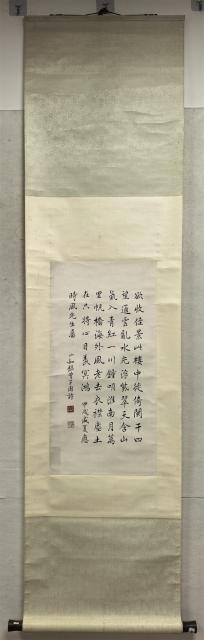 欲收佳景此樓中徙倚闌干四
望通雲亂水光浮紫翠天含山
氣入青紅一川鐘唄淮南月萬
里帆檣海外風老去衣襟塵土
在只將心目羨冥鴻 甲戌盛夏應
時風先生屬 錄曾子固詩